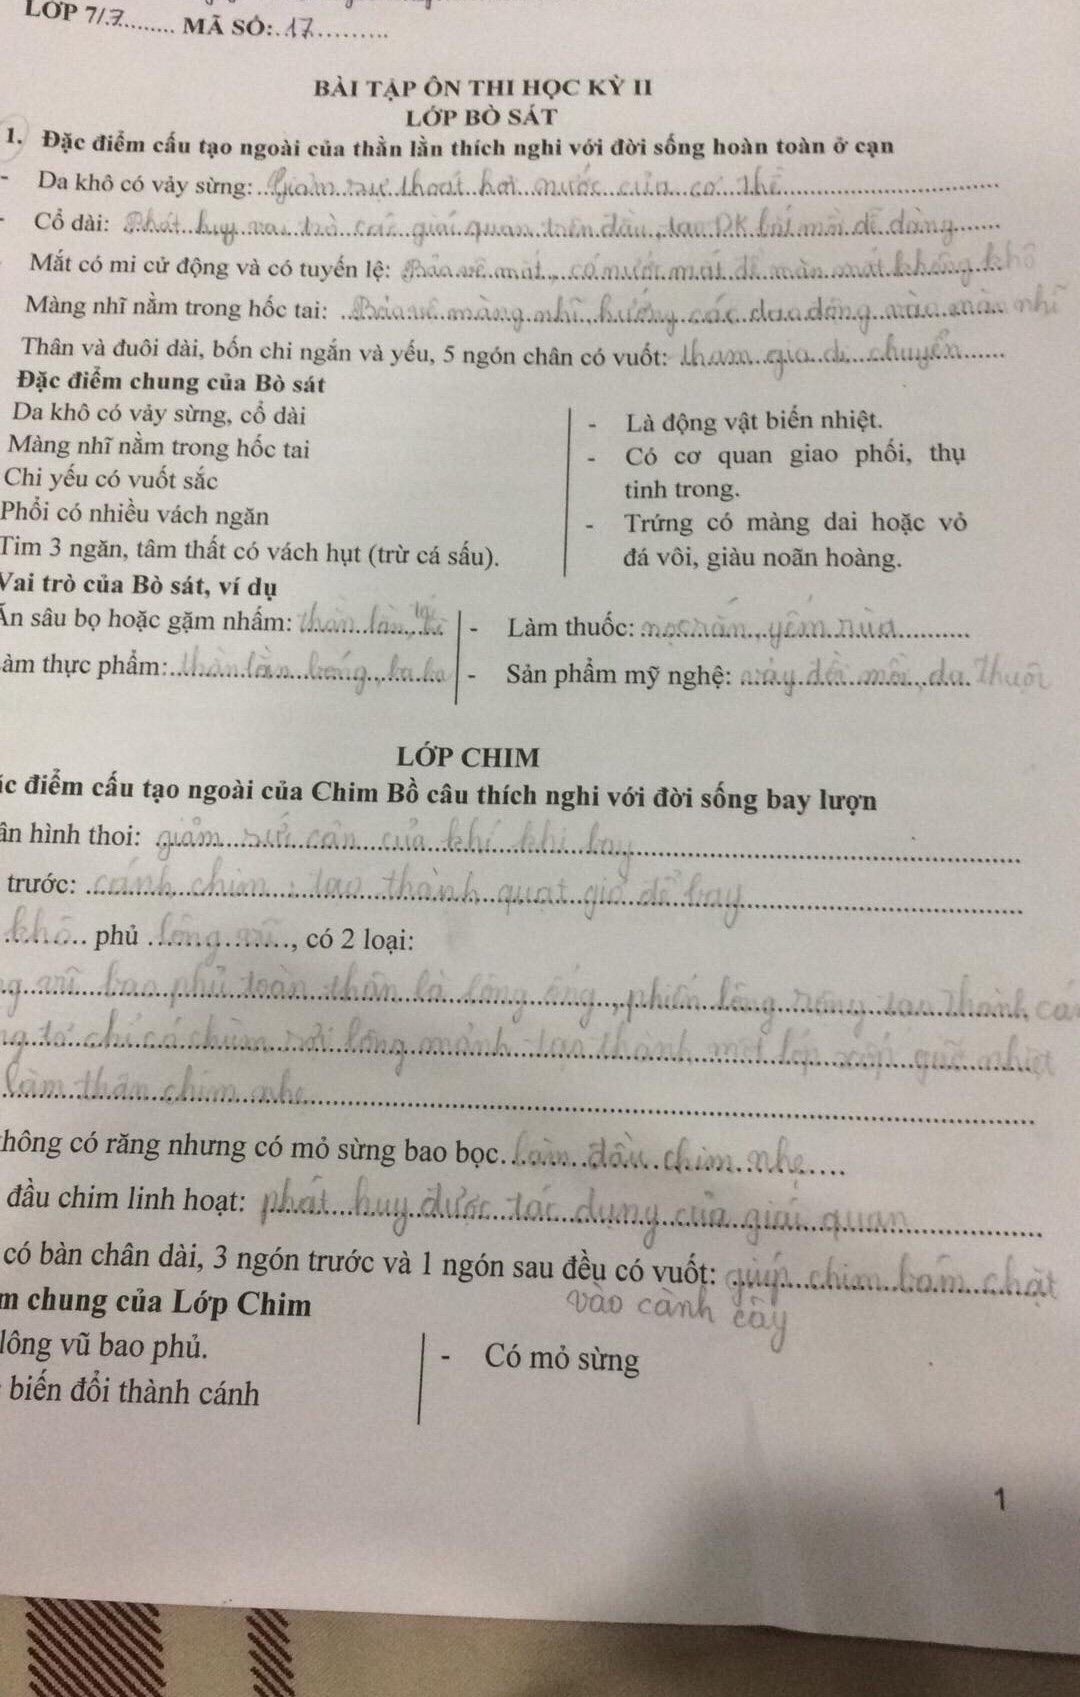 LỚP 7/.7......... MÃ SỐ:.17..........
BÀI TẬP ÔN THI HỌC KỲ II
LỚP BÒ SÁT
1. Đặc điểm cấu tạo ngoài của thằn lằn thích nghi với đời sống hoàn toàn ở cạn
- Da khô có vảy sừng: Giảm sự thoát hơi nước của cơ thể
- Cổ dài: Phát huy vai trò các giác quan trên đầu, tạo ĐK bắt mồi dễ dàng
Mắt có mi cử động và có tuyến lệ: Bảo vệ mắt, có nước mắt để màn mắt không khô
Màng nhĩ nằm trong hốc tai: Bảo vệ màng nhĩ, hướng các dao động vào màn nhĩ
Thân và đuôi dài, bốn chi ngắn và yếu, 5 ngón chân có vuốt: tham gia di chuyển
Đặc điểm chung của Bò sát
Da khô có vảy sừng, cổ dài
Màng nhĩ nằm trong hốc tai
Chi yếu có vuốt sắc
Phổi có nhiều vách ngăn
Tim 3 ngăn, tâm thất có vách hụt (trừ cá sấu).
- Là động vật biến nhiệt.
- Có cơ quan giao phối, thụ
tinh trong.
- Trứng có màng dai hoặc vỏ
đá vôi, giàu noãn hoàng.
Vai trò của Bò sát, ví dụ
Ăn sâu bọ hoặc gặm nhấm: thằn lằn,
àm thực phẩm: thằn lằn bóng, ba ba
- Làm thuốc: nọc rắn, yếm rùa
- Sản phẩm mỹ nghệ: vảy đồi mồi, da thuộc
LỚP CHIM
ặc điểm cấu tạo ngoài của Chim Bồ câu thích nghi với đời sống bay lượn
ân hình thoi: giảm sức cản của khí khi bay
trước: cánh chim: tạo thành quạt gió để bay
khô phủ lông vũ, có 2 loại:
g vũ bao phủ toàn thân là lông ống, phiến lông rộng tạo thành cán
ng tơ chỉ có chùm sợi lông mảnh tạo thành một lớp xốp giữ nhiệt
làm thân chim nhẹ
hông có răng nhưng có mỏ sừng bao bọc. làm đầu chim nhẹ
đầu chim linh hoạt: phát huy được tác dụng của giác quan
có bàn chân dài, 3 ngón trước và 1 ngón sau đều có vuốt: giúp chim bám chặt
vào cành cây
m chung của Lớp Chim
lông vũ bao phủ.
biến đổi thành cánh
- Có mỏ sừng
1